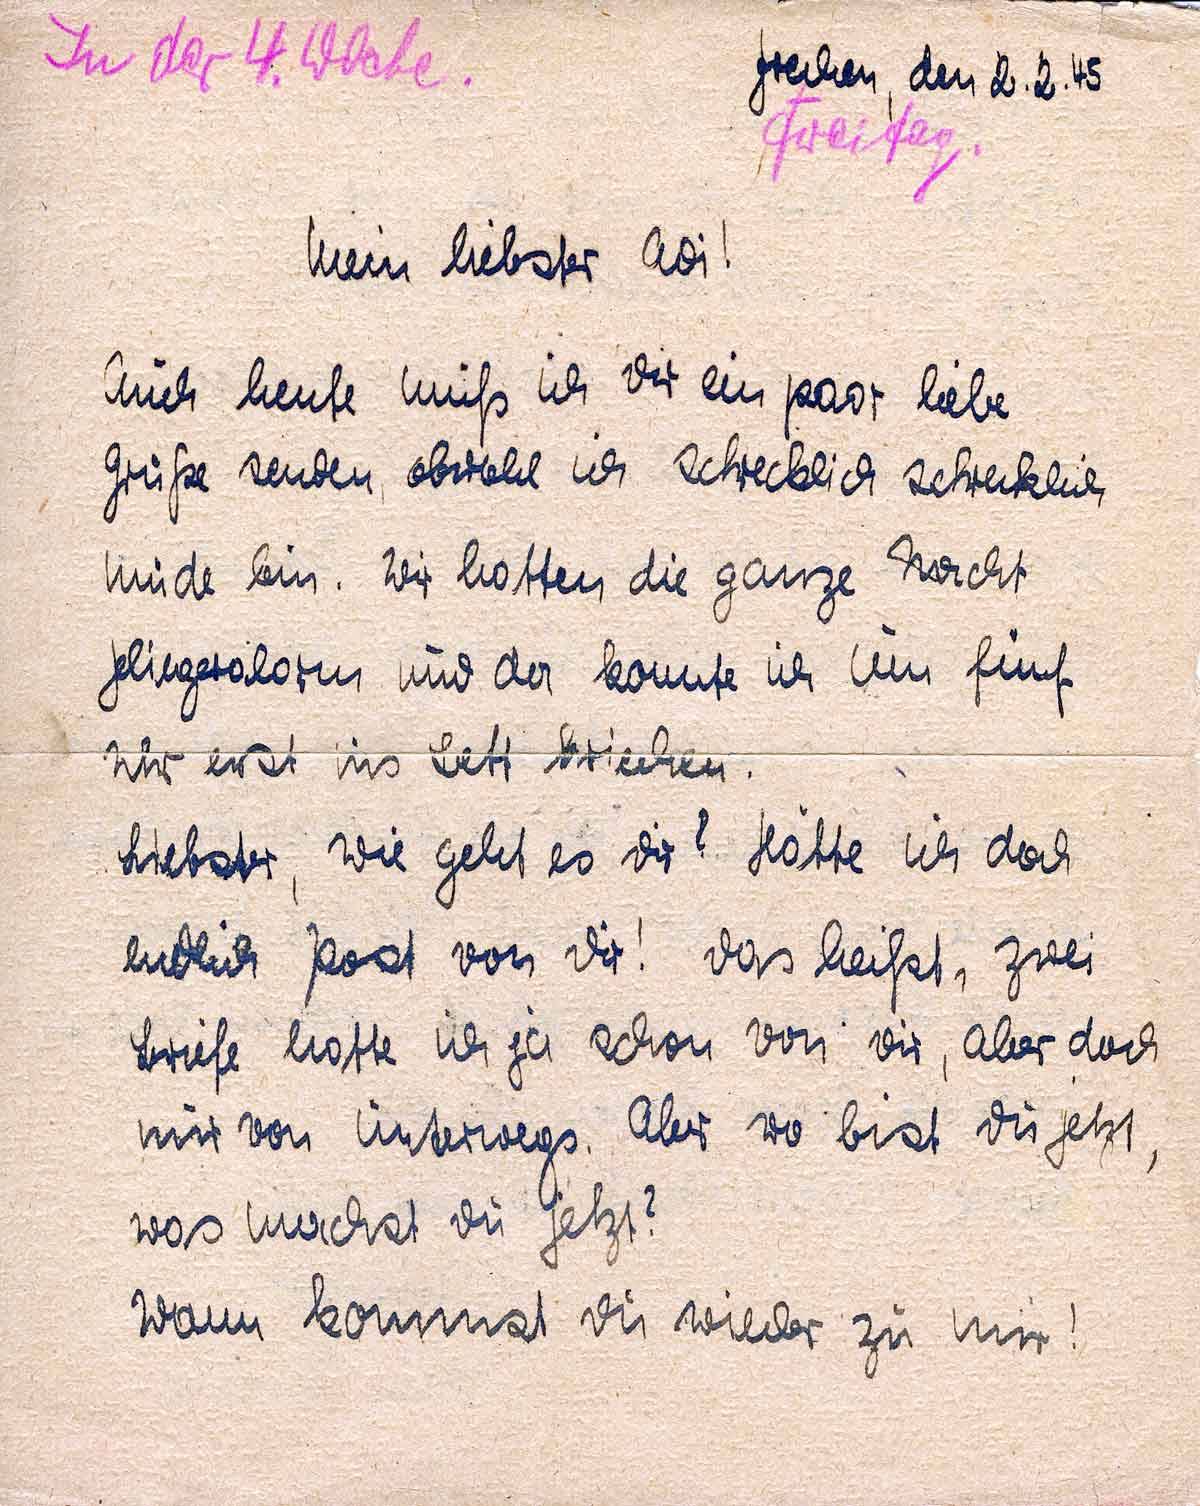 In der 4. Woche.
Frechen, den 2.2.45
Freitag.
Mein liebster Adi!
Auch heute muß ich dir ein paar liebe
Grüße senden, obwohl ich schrecklich schrecklich
müde bin. Wir hatten die ganze Nacht
Fliegeralarm und da konnte ich um fünf
Uhr erst ins Bett kriechen.
Liebster, wie geht es dir? Hätte ich doch
endlich Post von dir! Das heißt, zwei
Briefe hatte ich ja schon von dir, aber doch
nur von unterwegs. Aber wo bist du jetzt,
was machst du jetzt?
Wann kommst du wieder zu mir!